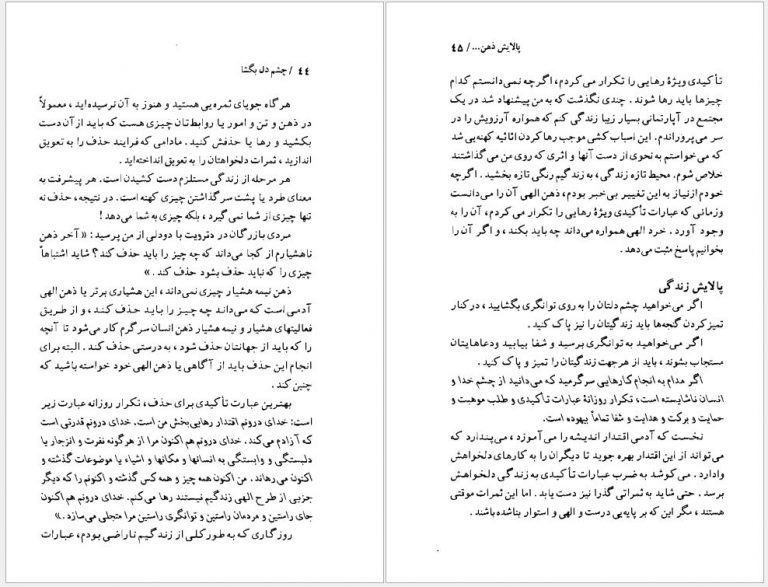 ۴۴ / چشم دل بگشا
هر گاه جویای ثمره‌یی هستید و هنوز به آن نرسیده‌اید، معمولاً
در ذهن و تن و امور یا روابط‌تان چیزی هست که باید از آن دست
بکشید و رها یا حذفش کنید. مادامی که فرایند حذف را به تعویق
اندازید، ثمرات دلخواهتان را به تعویق انداخته‌اید.
هر مرحله از زندگی مستلزم دست کشیدن است. هر پیشرفت به
معنای طرد یا پشت سر گذاشتن چیزی کهنه است. در نتیجه، حذف نه
تنها چیزی از شما نمی‌گیرد، بلکه چیزی به شما می‌دهد!
مردی بازرگان در دترویت با دودلی از من پرسید: «آخر ذهن
ناهشیارم از کجا می‌داند که چه چیز را باید حذف کند؟ شاید اشتباهاً
چیزی را که نباید حذف بشود حذف کند.»
ذهن نیمه هشیار چیزی نمی‌داند، این هشیاری برتر یا ذهن الهی
آدمی است که می‌داند چه چیز را باید حذف کند، و از طریق
فعالیتهای هشیار و نیمه هشیار ذهن انسان سرگرم کار می‌شود تا آنچه
را که باید از جهانتان حذف شود، به درستی حذف کند. البته برای
انجام این حذف باید از آگاهی یا ذهن الهی خود خواسته باشید که
چنین کند.
بهترین عبارت تأکیدی برای حذف، تکرار روزانه عبارت زیر
است: خدای درونم اقتدار رهایی‌بخش من است. خدای درونم قدرتی است
که آزادم می‌کند. خدای درونم هم اکنون مرا از هرگونه نفرت و انزجار یا
دلبستگی و وابستگی به انسانها و مکانها و اشیاء یا موضوعات گذشته و
اکنون می‌رهاند. من اکنون همه چیز و همه کس گذشته و اکنونم را که دیگر
جزیی از طرح الهی زندگیم نیستند رها می‌کنم. خدای درونم هم اکنون
جای راستین و مردمان راستین و توانگری راستین مرا متجلی می‌سازد.»
روزگاری که به طور کلی از زندگیم ناراضی بودم، عبارات
پالایش ذهن... / ۴۵
تأکیدی ویژهٔ رهایی را تکرار می‌کردم، اگر چه نمی‌دانستم کدام
چیزها باید رها شوند. چندی نگذشت که به من پیشنهاد شد در یک
مجتمع در آپارتمانی بسیار زیبا زندگی کنم که همواره آرزویش را در
سر می‌پروراندم. این اسباب کشی موجب رها کردن اثاثیه کهنه‌یی شد
که می‌خواستم به نحوی از دست آنها و اثری که روی من می‌گذاشتند
خلاص شوم. محیط تازه زندگی، به زندگیم رنگی تازه بخشید. اگر چه
خودم از نیاز به این تغییر بی‌خبر بودم، ذهن الهی آن را می‌دانست
وزمانی که عبارات تأکیدی ویژهٔ رهایی را تکرار می‌کردم، آن را به
وجود آورد. خرد الهی همواره می‌داند چه باید بکند، و اگر آن را
بخوانیم پاسخ مثبت می‌دهد.
پالایش زندگی
اگر می‌خواهید چشم دلتان را به روی توانگری بگشایید، در کنار
تمیز کردن گنجه‌ها باید زندگیتان را نیز پاک کنید.
اگر می‌خواهید به توانگری برسید و شفا بیابید و دعاهایتان
مستجاب بشوند، باید از هر جهت زندگیتان را تمیز و پاک کنید.
اگر مدام به انجام کارهایی سرگرمید که می‌دانید از چشم خدا و
انسان ناشایسته است، تکرار روزانهٔ عبارات تأکیدی و طلب موهبت و
حمایت و برکت و هدایت و شفا تماماً بیهوده است.
نخست که آدمی اقتدار اندیشه را می‌آموزد، می‌پندارد که
می‌تواند از این اقتدار بهره جوید تا دیگران را به کارهای دلخواهش
وادارد. می‌کوشد به ضرب عبارات تأکیدی به زندگی دلخواهش
برسد. حتی شاید به ثمراتی گذرا نیز دست یابد. اما این ثمرات موقتی
هستند، مگر این که بر پایه‌یی درست و الهی و استوار بنا شده باشند.